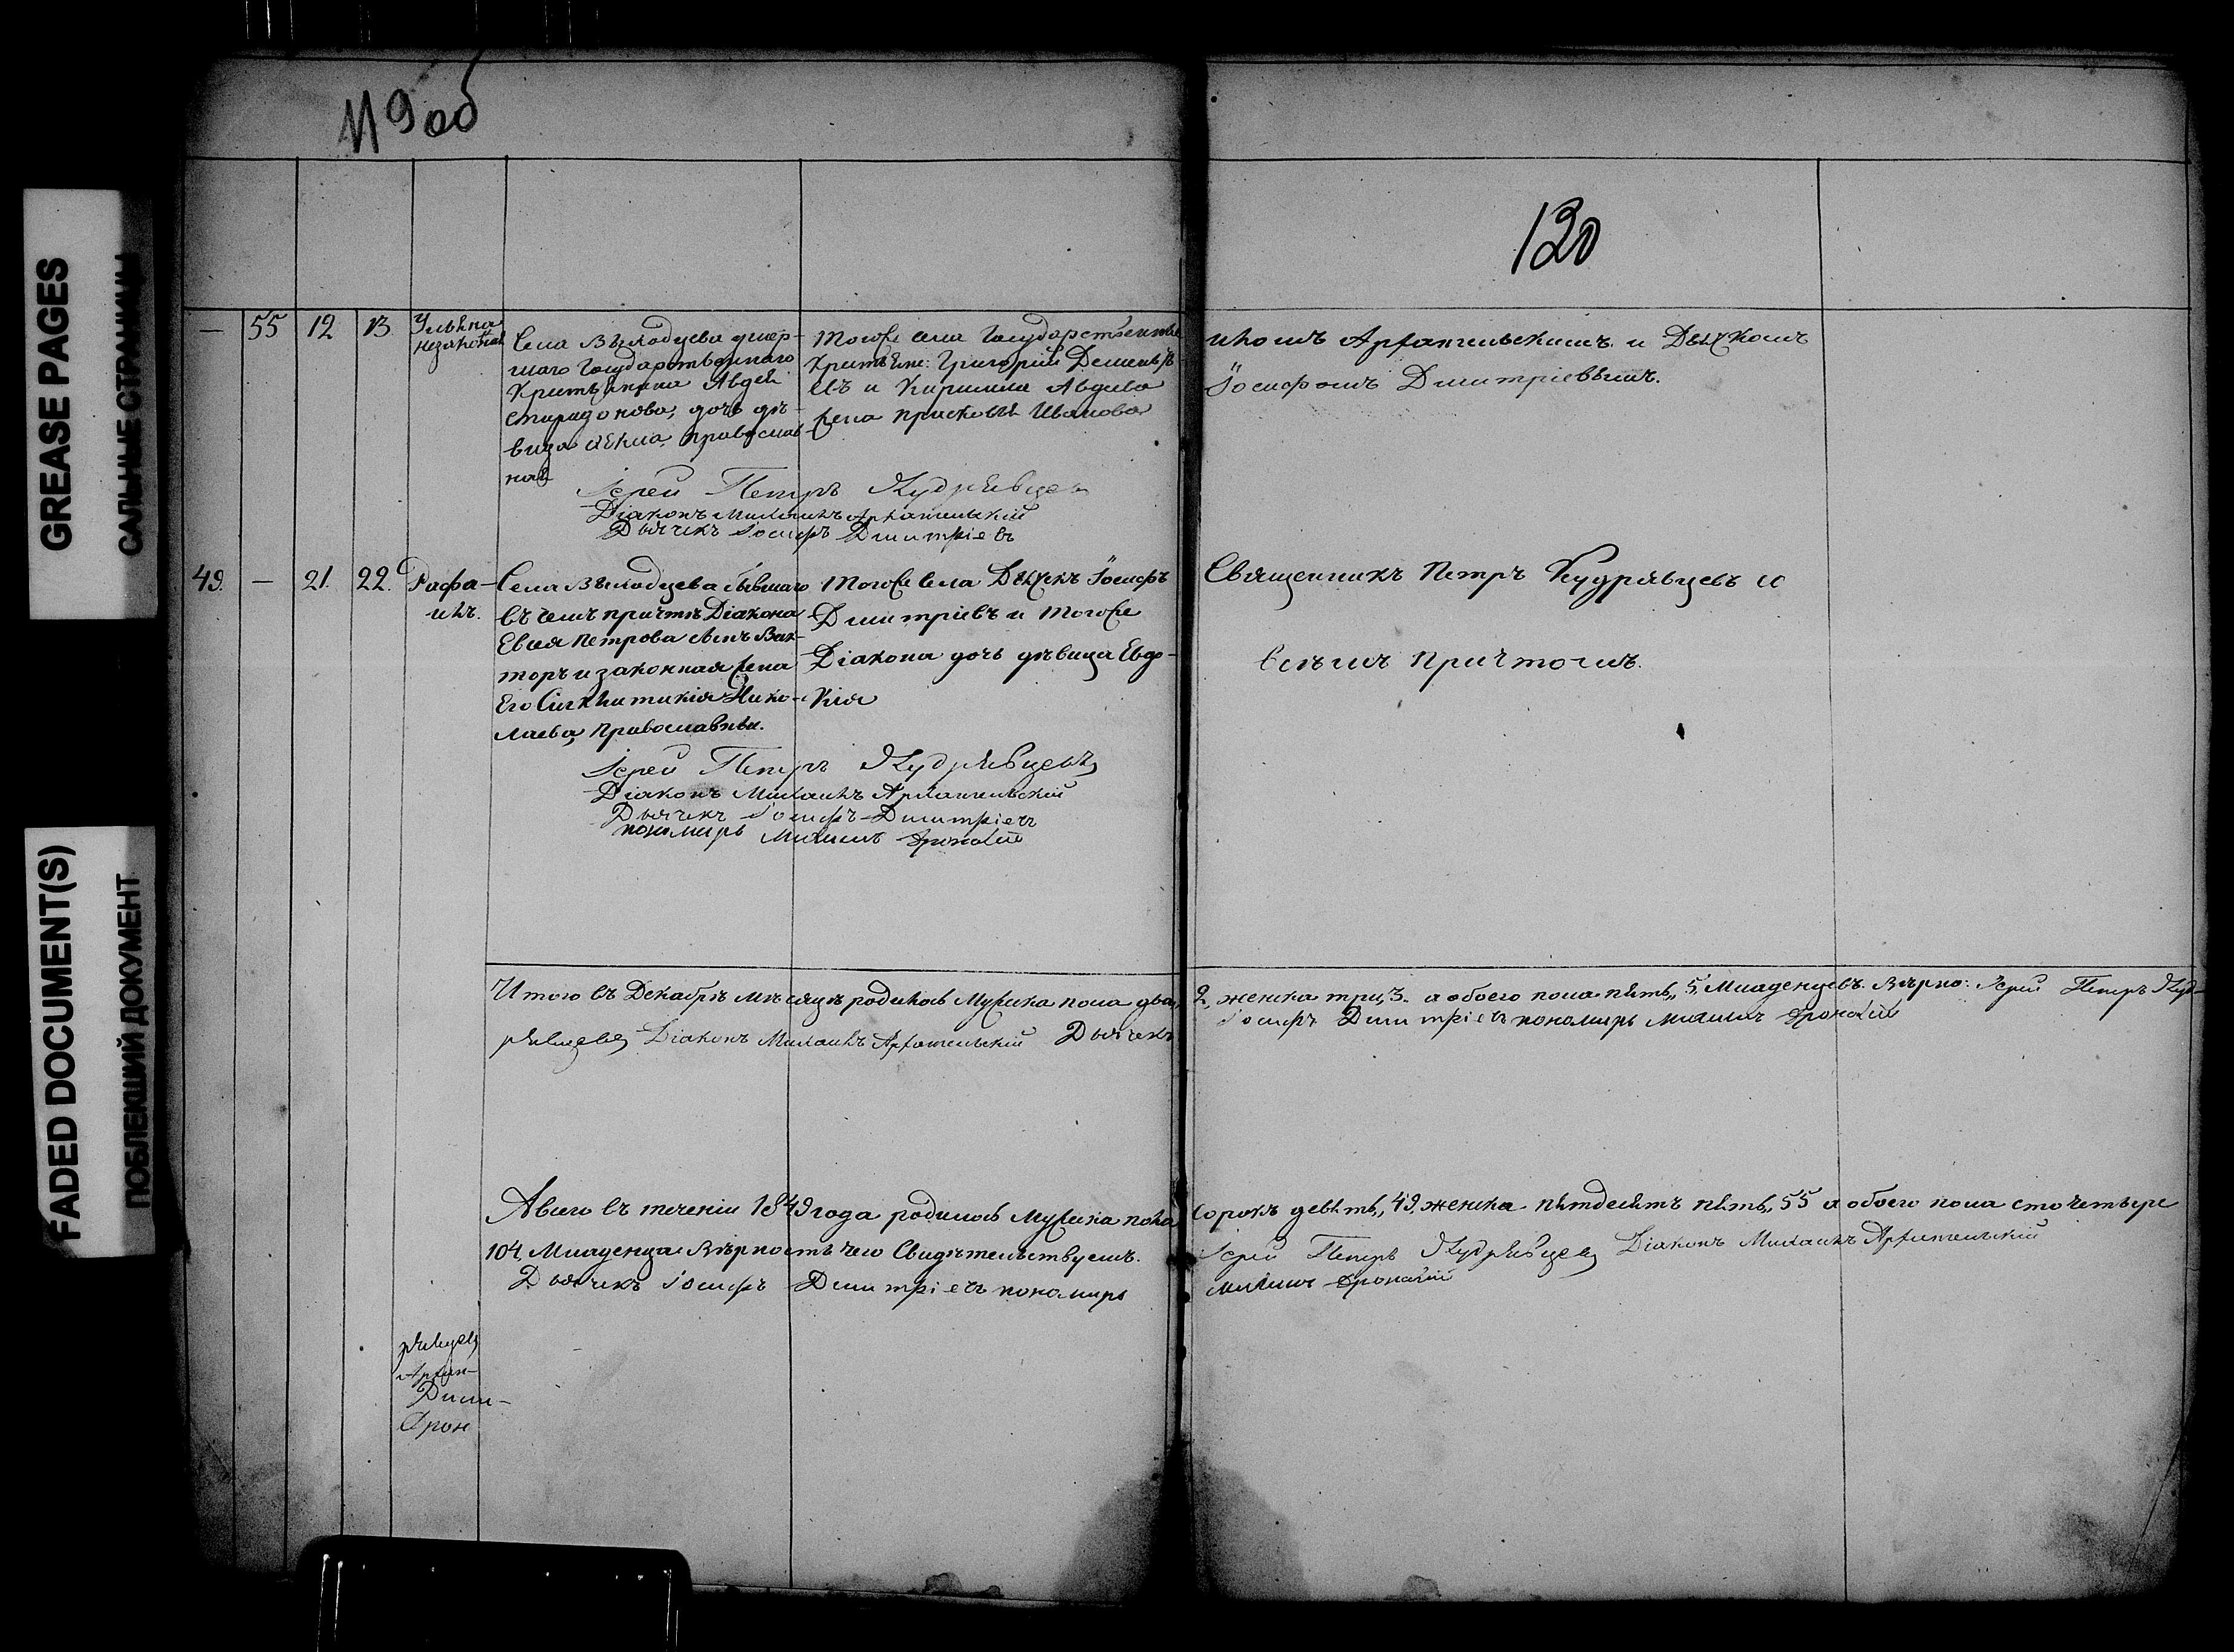 GREASE PAGES
САЛЬНЫЕ СТРАНИЦЫ
FADED DOCUMENT(S)
ПОБЛЕКШИЙ ДОКУМЕНТ
119 об
120
— 55 12 13 Ульяна
незаконная
Села Вылодцева умер-
шаго Государственнаго
Крестьянина Авдея
Спиридонова, дочь дѣ-
вица православ-
ная
Тогоже села Государственные
Крестьяне: Григорій Дементь-
евъ и Кирилла Авдеева
жена Прасковья Иванова
икомъ Архангельскимъ и Дьячкомъ
Іосифомъ Димитріевымъ.
Іерей Петръ Кудрявцевъ
Діаконъ Михаилъ Архангельскій
Дьячекъ Іосифъ Димитріевъ
49. — 21. 22. Рафа-
илъ.
Села Вылодцева бывшаго
въ чемъ причтѣ Діакона
Евсея Петрова сынъ Вик-
торъ и законная жена
Его Синклитикія Нико-
лаева, Православные.
Тогоже села Дьячекъ Іосифъ
Димитріевъ и тогоже
Діакона дочь дѣвица Евдо-
кія
Священникъ Петръ Кудрявцевъ со
всѣмъ причтомъ.
Іерей Петръ Кудрявцевъ
Діаконъ Михаилъ Архангельскій
Дьячекъ Іосифъ Димитріевъ
пономарь Михаилъ
Итого въ Декабрѣ мѣсяцѣ родилось Мужеска пола два, 2, женска три, 3. а обоего пола пять, 5, Младенцевъ. Вѣрно: Іерей Петръ Куд-
рявцевъ Діаконъ Михаилъ Архангельскій Дьячекъ Іосифъ Димитріевъ пономарь Михаилъ
А всего въ теченіи 1849 года родилось Мужеска пола сорокъ девять, 49, женска пятдесятъ пять, 55 а обоего пола сто четыре
104 Младенца. Вѣрность чего Свидѣтельствуемъ. Іерей Петръ Кудрявцевъ Діаконъ Михаилъ Архангельскій
Дьячекъ Іосифъ Димитріевъ пономарь Михаилъ
рявцевъ
Архан-
Дими-
Дрон